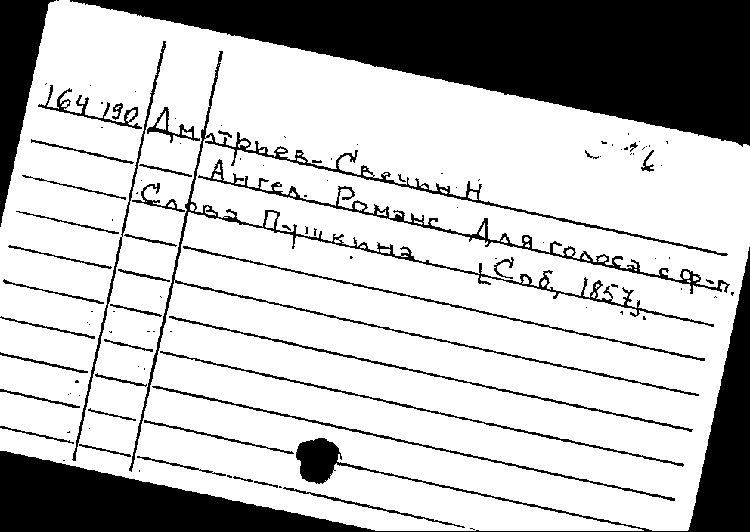 164 190 Дмитриев-Свечин Н
Ангел. Романс. Для голоса с ф-п.
Слова Пушкина. [Спб, 1857].